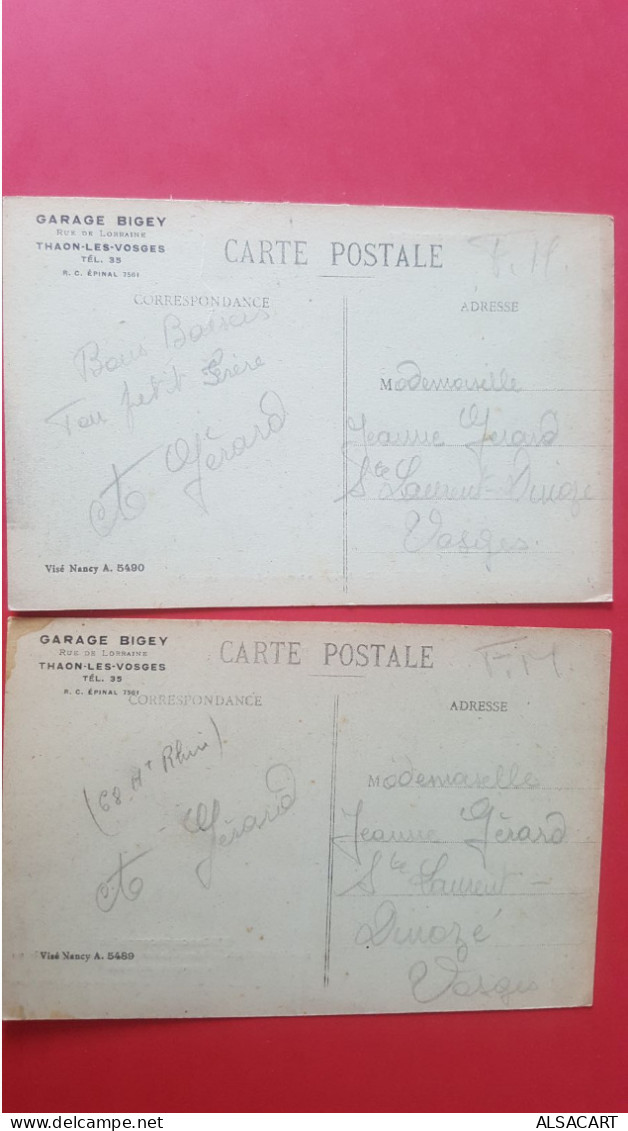 GARAGE BIGEY
RUE DE LORRAINE
THAON-LES-VOSGES
TÉL. 35
R. C. ÉPINAL 7561
CARTE POSTALE
F.M.
CORRESPONDANCE
ADRESSE
Bons Baisers
Ton petit Frère
Gérard
Mademoiselle
Jeanne Gérard
St Laurent-Dinozé
Vosges.
Visé Nancy A. 5490
GARAGE BIGEY
RUE DE LORRAINE
THAON-LES-VOSGES
TÉL. 35
R. C. ÉPINAL 7561
CARTE POSTALE
F.M.
CORRESPONDANCE
ADRESSE
(68 Ht Rhin)
Gérard
Mademoiselle
Jeanne Gérard
Laurent-
Dinozé
Vosges
Visé Nancy A. 5489
ALSACART